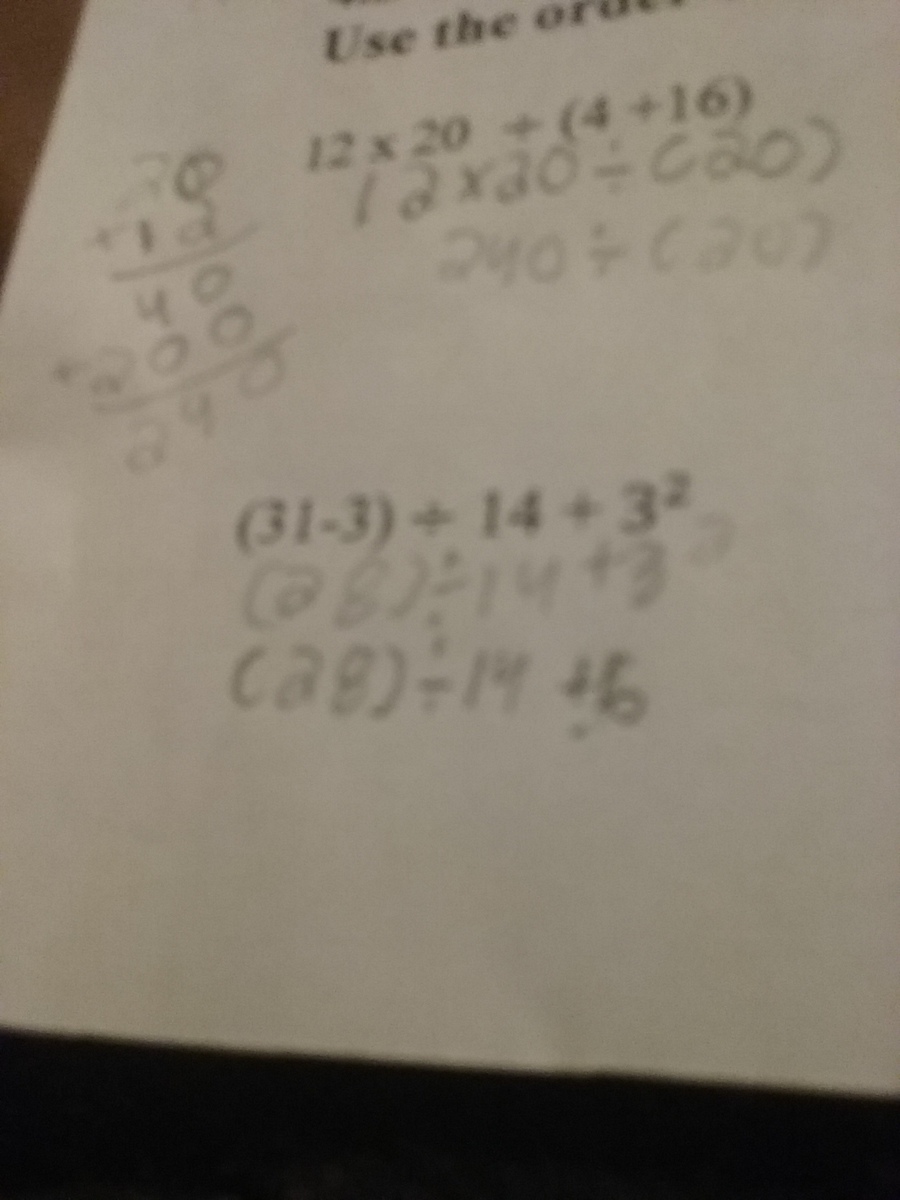 Use the order
12 x 20 ÷ (4 +16)
12x20÷(20)
240÷(20)
20
+12
40
+200
240
(31-3) ÷ 14 + 3²
(28)÷14+3²
(28)÷14 +6